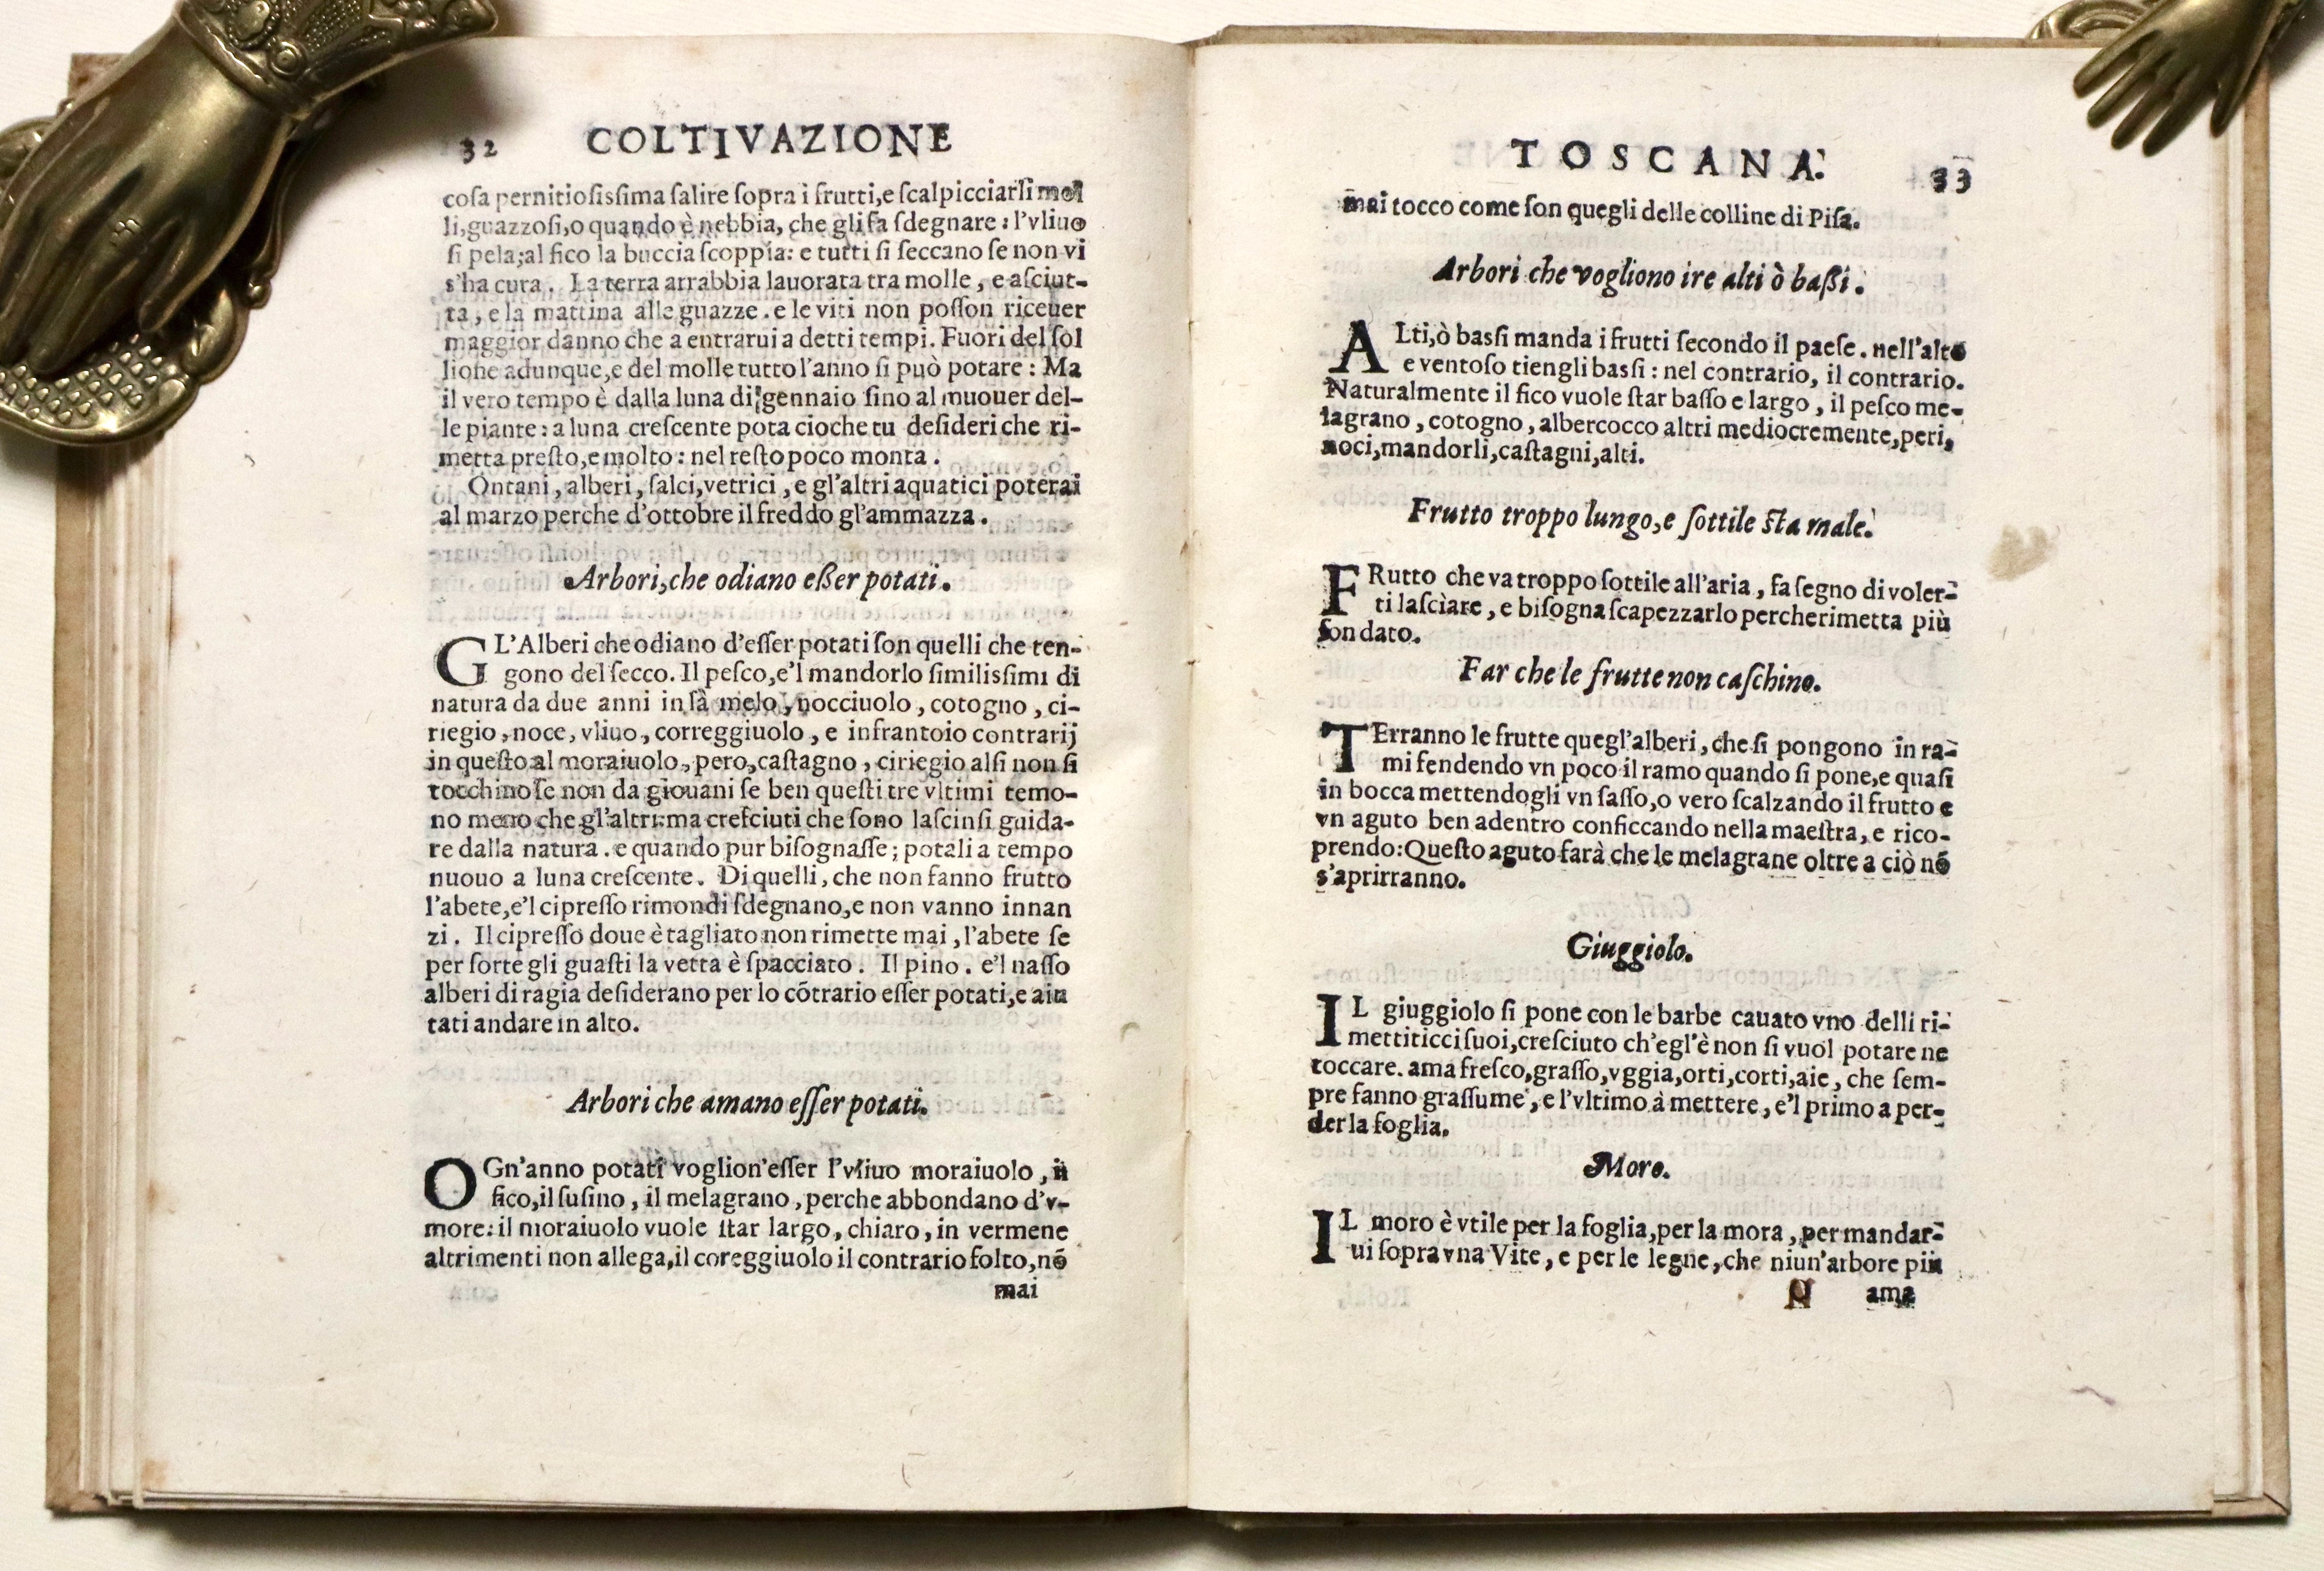 32 COLTIVAZIONE
coſa pernitioſisſima ſalire ſopra i frutti,e ſcalpicciarſi mol
li,guazzoſi,o quando è nebbia, che gli fa ſdegnare: l'vliuo
ſi pela;al fico la buccia ſcoppia: e tutti ſi ſeccano ſe non vi
s'ha cura. La terra arrabbia lauorata tra molle, e aſciut-
ta, e la mattina alle guazze. e le viti non poſſon riceuer
maggior danno che a entrarui a detti tempi. Fuori del ſol
lione adunque,e del molle tutto l'anno ſi può potare: Ma
il vero tempo è dalla luna di gennaio ſino al muouer del-
le piante: a luna creſcente pota cioche tu deſideri che ri-
metta preſto,e molto: nel reſto poco monta.
Ontani, alberi, ſalci, vetrici, e gl'altri aquatici poterai
al marzo perche d'ottobre il freddo gl'ammazza.
Arbori,che odiano eßer potati.
GL'Alberi che odiano d'eſſer potati ſon quelli che ten-
gono del ſecco. Il peſco,e'l mandorlo ſimilisſimi di
natura da due anni in là melo, nocciuolo, cotogno, ci-
riegio, noce, vliuo, correggiuolo, e infrantoio contrarij
in queſto al moraiuolo, pero, caſtagno, ciriegio alſi non ſi
tocchino ſe non da giouani ſe ben queſti tre vltimi temo-
no meno che gl'altri:ma creſciuti che ſono laſcinſi guida-
re dalla natura. e quando pur biſognaſſe; potali a tempo
nuouo a luna creſcente. Di quelli, che non fanno frutto
l'abete,e'l cipreſſo rimondi ſdegnano,e non vanno innan
zi. Il cipreſſo doue è tagliato non rimette mai, l'abete ſe
per ſorte gli guaſti la vetta è ſpacciato. Il pino. e'l naſſo
alberi di ragia deſiderano per lo cõtrario eſſer potati,e aiu
tati andare in alto.
Arbori che amano eſſer potati.
OGn'anno potati voglion'eſſer l'vliuo moraiuolo, il
fico,il ſuſino, il melagrano, perche abbondano d'v-
more: il moraiuolo vuole ſtar largo, chiaro, in vermene
altrimenti non allega,il coreggiuolo il contrario folto,nõ
mai
TOSCANA. 33
mai tocco come ſon quegli delle colline di Piſa.
Arbori che vogliono ire alti ò baßi.
ALti,ò basſi manda i frutti ſecondo il paeſe. nell'alto
e ventoſo tiengli basſi: nel contrario, il contrario.
Naturalmente il fico vuole ſtar baſſo e largo, il peſco me-
lagrano, cotogno, albercocco altri mediocremente,peri,
noci,mandorli,caſtagni,alti.
Frutto troppo lungo,e ſottile ſta male.
FRutto che va troppo ſottile all'aria, fa ſegno di voler-
ti laſciare, e biſogna ſcapezzarlo perche rimetta più
fondato.
Far che le frutte non caſchino.
TErranno le frutte quegl'alberi, che ſi pongono in ra-
mi fendendo vn poco il ramo quando ſi pone,e quaſi
in bocca mettendogli vn ſaſſo,o vero ſcalzando il frutto e
vn aguto ben adentro conficcando nella maeſtra, e rico-
prendo: Queſto aguto farà che le melagrane oltre a ciò nõ
s'aprirranno.
Giuggiolo.
IL giuggiolo ſi pone con le barbe cauato vno delli ri-
mettiticci ſuoi,creſciuto ch'egl'è non ſi vuol potare ne
toccare. ama freſco,graſſo,vggia,orti,corti,aie, che ſem-
pre fanno graſſume, e l'vltimo à mettere, e'l primo a per-
der la foglia.
Moro.
IL moro è vtile per la foglia,per la mora, per mandar-
ui ſopra vna Vite, e per le legne,che niun'arbore più
ama